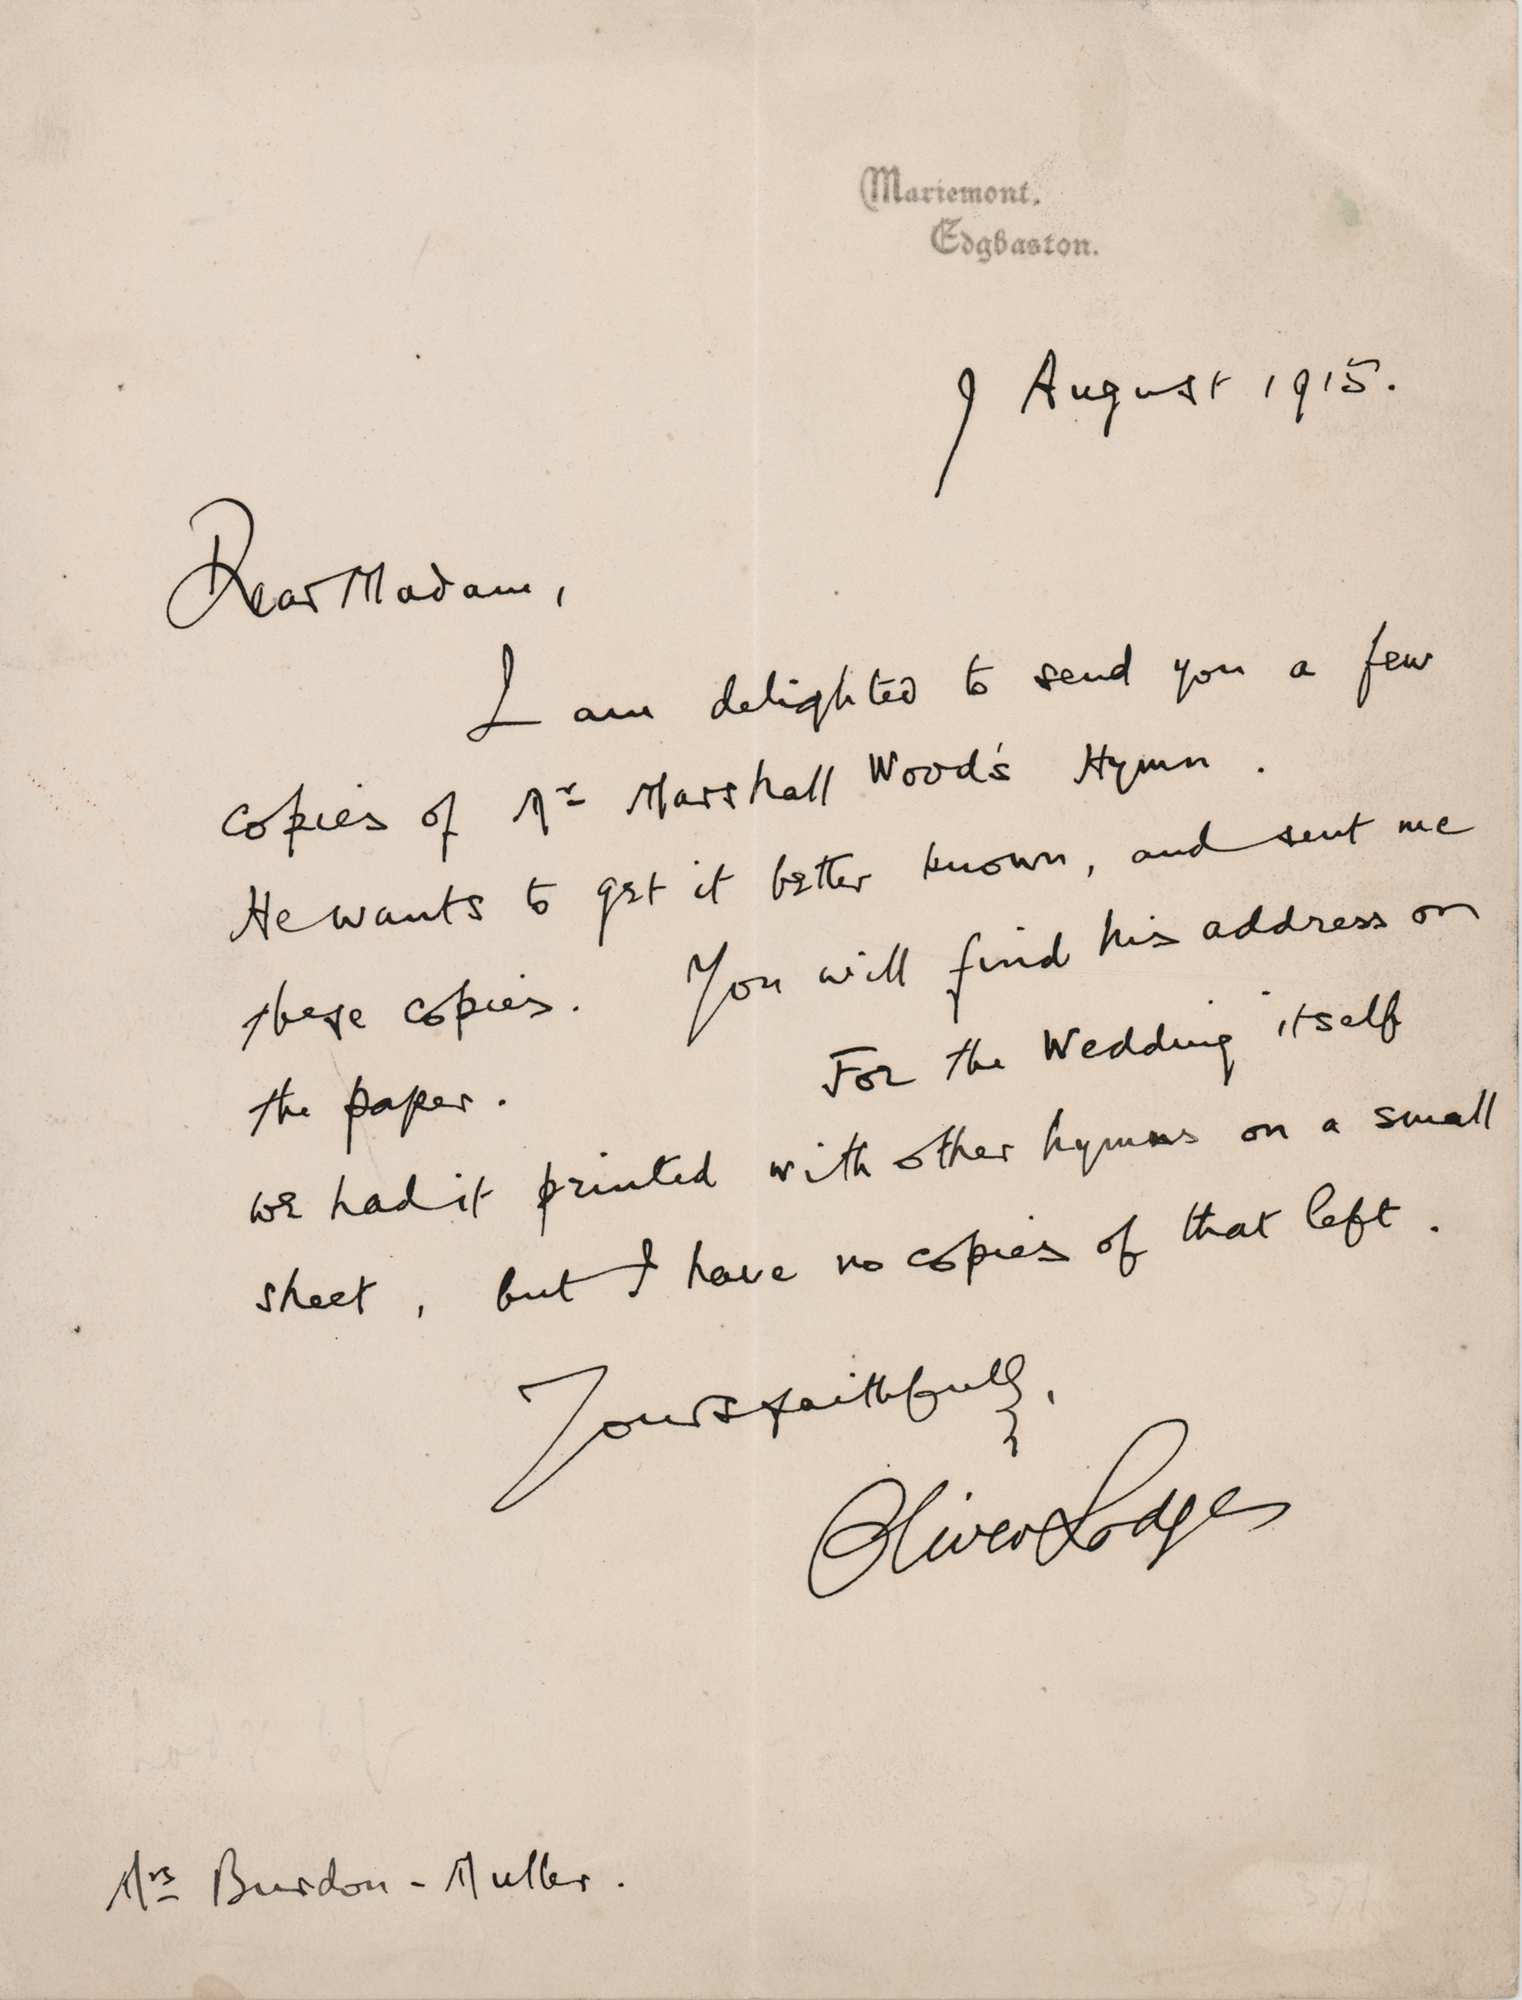 Mariemont,
Edgbaston.
9 August 1915.
Dear Madam,
I am delighted to send you a few
copies of Mr Marshall Wood's Hymn .
He wants to get it better known, and sent me
these copies. You will find his address on
the paper. For the Wedding itself
we had it printed with other hymns on a small
sheet, but I have no copies of that left.
Yours faithfully,
Oliver Lodge
Mrs Burdon-Muller.